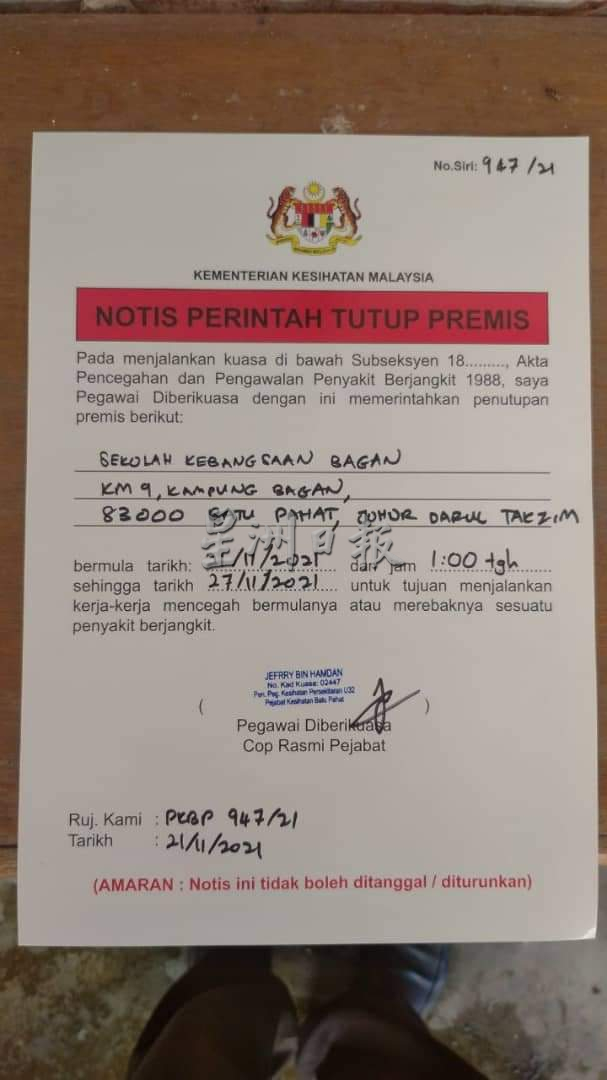 No.Siri: 947/21
KEMENTERIAN KESIHATAN MALAYSIA
NOTIS PERINTAH TUTUP PREMIS
Pada menjalankan kuasa di bawah Subseksyen 18........., Akta
Pencegahan dan Pengawalan Penyakit Berjangkit 1988, saya
Pegawai Diberikuasa dengan ini memerintahkan penutupan
premis berikut:
SEKOLAH KEBANGSAAN BAGAN
KM 9, KAMPUNG BAGAN,
83000 BATU PAHAT, JOHOR DARUL TAKZIM
星洲日報
bermula tarikh: /11/2021 dari jam 1:00 tgh
sehingga tarikh 27/11/2021 untuk tujuan menjalankan
kerja-kerja mencegah bermulanya atau merebaknya sesuatu
penyakit berjangkit.
JEFRRY BIN HAMDAN
No. Kad Kuasa: 02447
Pen. Peg. Kesihatan Persekitaran U32
Pejabat Kesihatan Batu Pahat
( )
Pegawai Diberikuasa
Cop Rasmi Pejabat
Ruj. Kami : PKBP 947/21
Tarikh : 21/11/2021
(AMARAN : Notis ini tidak boleh ditanggal / diturunkan)